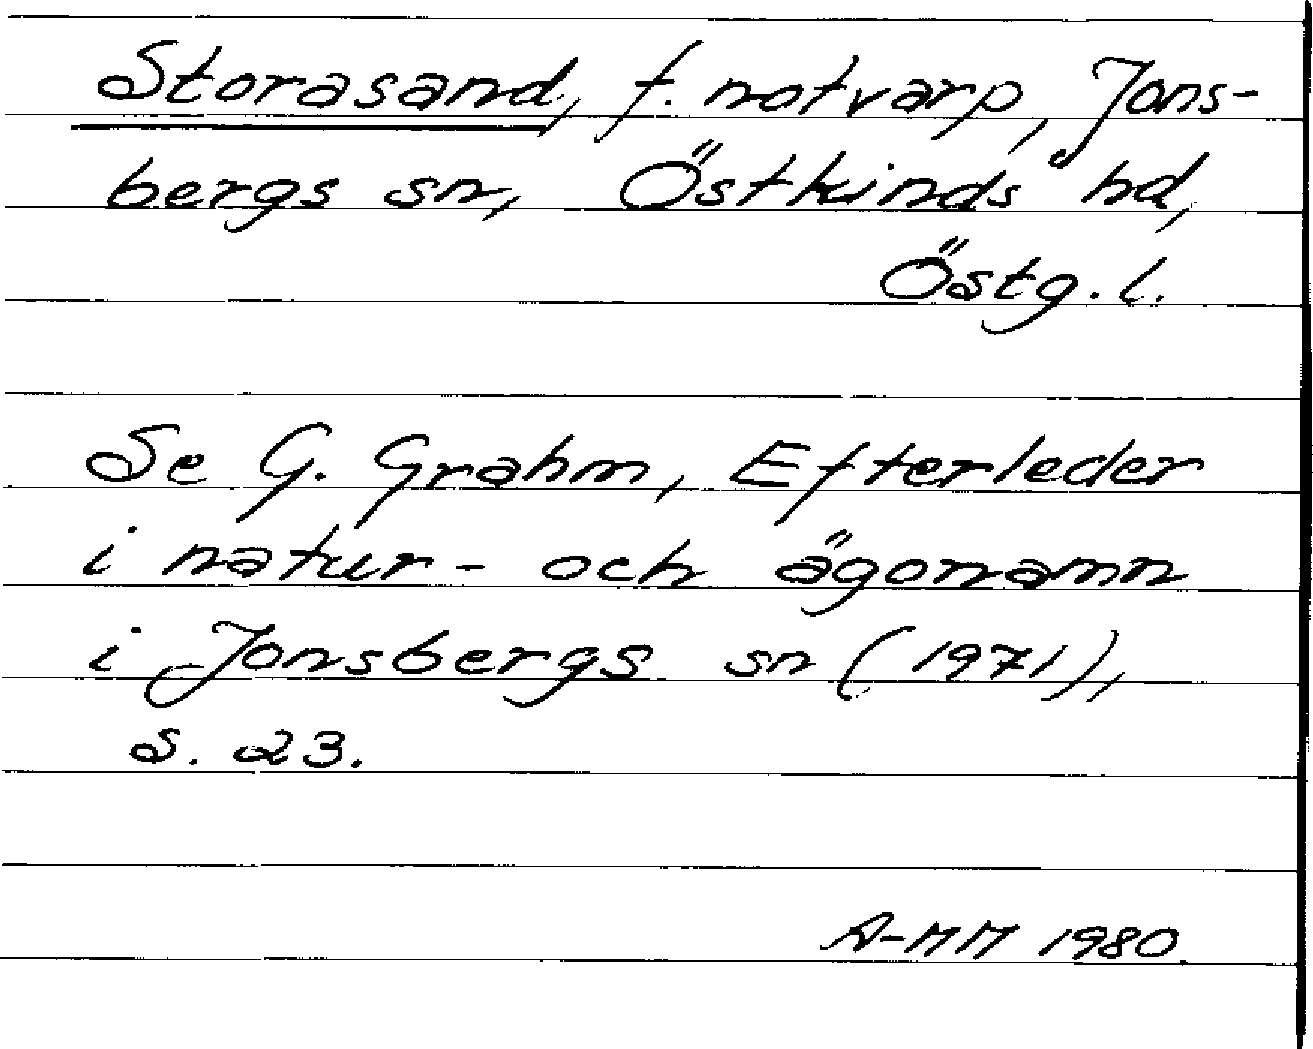 Storasand, f. notvarp, Jons-
bergs sn, Östkinds hd,
Östg. l.
Se G. Grahm, Efterleder
i natur- och ägonamn
i Jonsbergs sn (1971),
s. 23.
A-MM 1980.